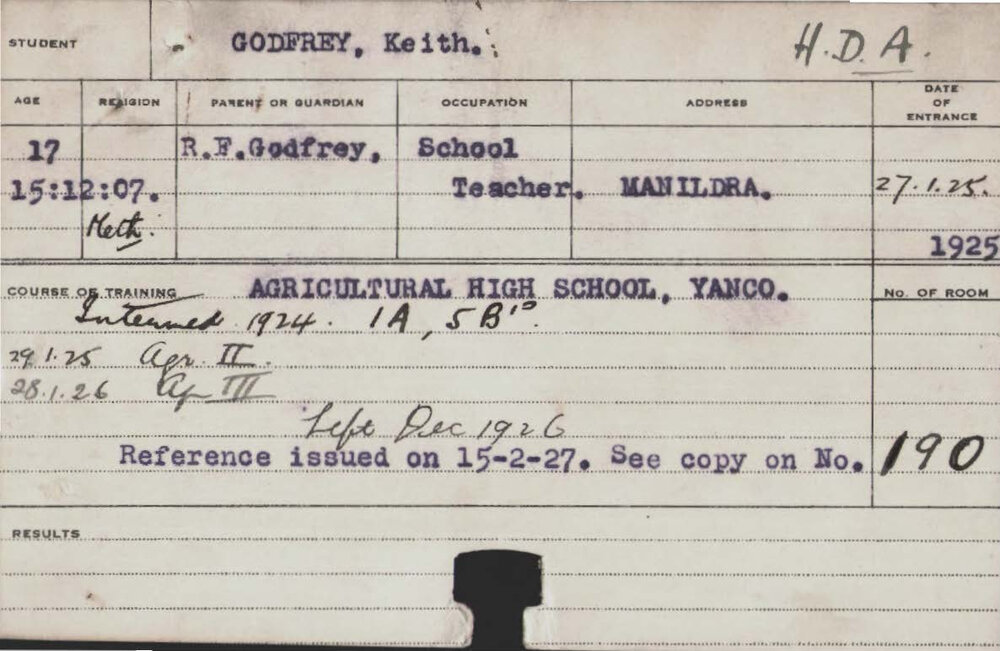 STUDENT GODFREY, Keith. H.D.A.
AGE RELIGION PARENT OR GUARDIAN OCCUPATION ADDRESS DATE OF ENTRANCE
17 R.F.Godfrey, School
15:12:07. Teacher. MANILDRA. 27.1.25.
Meth.
1925
COURSE OF TRAINING AGRICULTURAL HIGH SCHOOL, YANCO. No. OF ROOM
Intermed 1924. 1A, 5B's.
29.1.25 Agr. II.
28.1.26 Ag III
Left Dec 1926
Reference issued on 15-2-27. See copy on No. 190
RESULTS